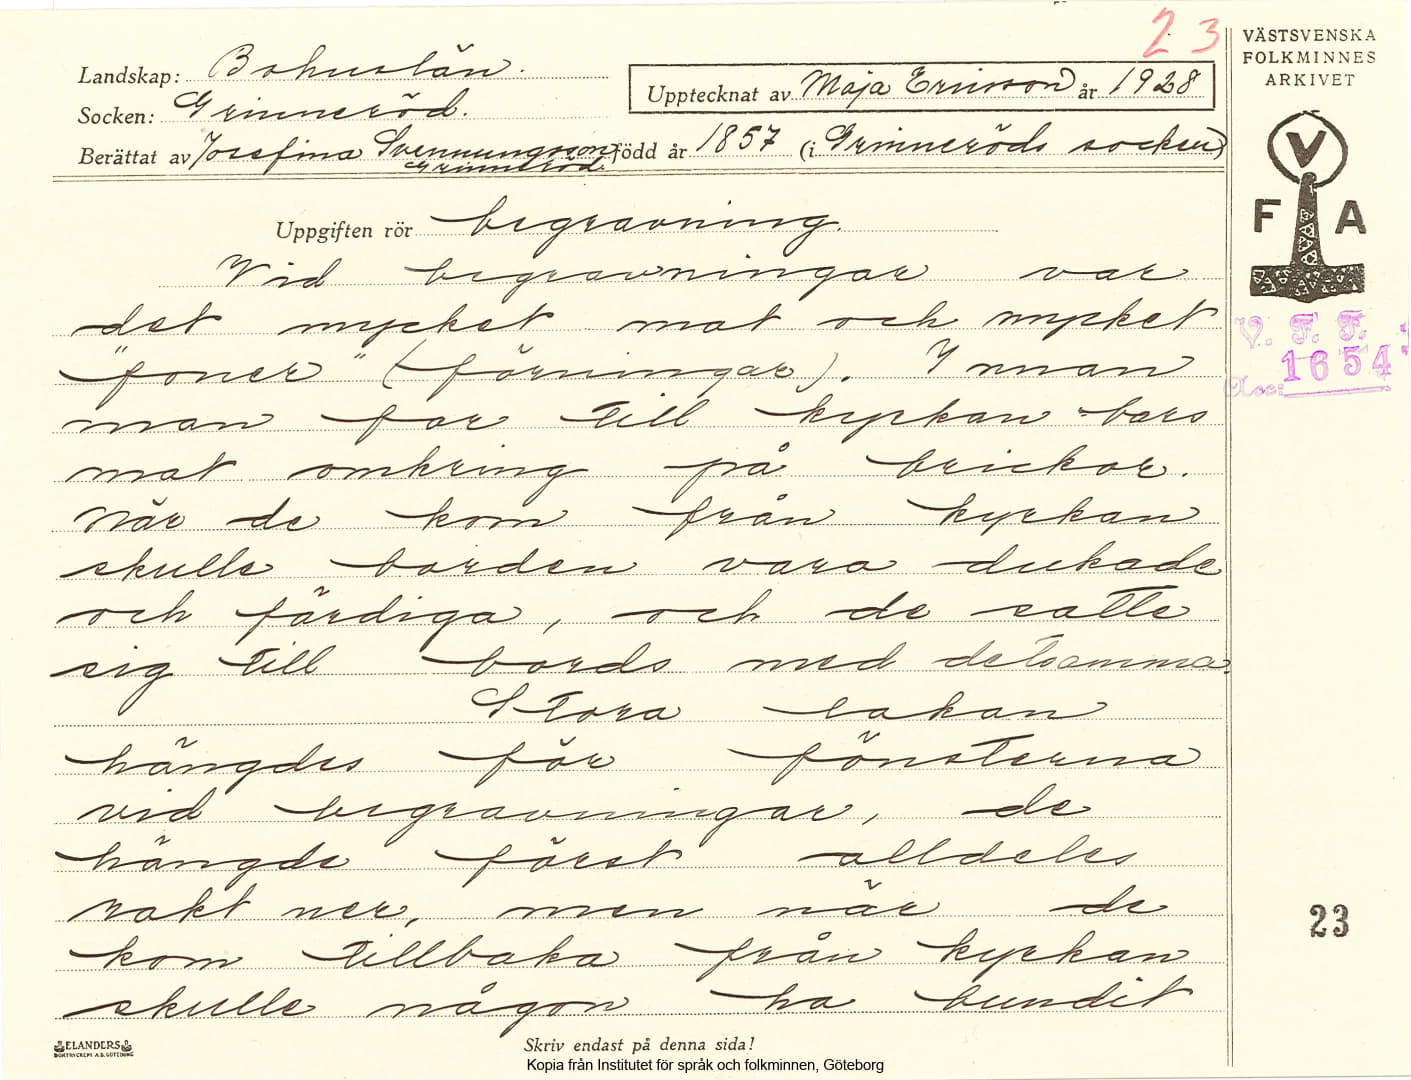 23
VÄSTSVENSKA
FOLKMINNES
ARKIVET
Landskap: Bohuslän.
Upptecknat av Maja Ericsson år 1928
Socken: Grinneröd.
Berättat av Josefina Svenningsson född år 1857 (i Grinneröds socken)
Grinneröd.
V
F A
Uppgiften rör begravning.
Vid begravningar var
det mycket mat och mycket
"foner" (förningar). Innan
man for till kyrkan bars
mat omkring på brickor.
När de kom från kyrkan
skulle borden vara dukade
och färdiga, och de satte
sig till bords med detsamma.
Stora lakan
hängdes för fönsterna
vid begravningar, de
hängde först alldeles
rakt ner, men när de
kom tillbaka från kyrkan
skulle någon ha bundit
V. F. F.
Acc: 1654
23
ELANDERS
BOKTRYCKERI A.B. GÖTEBORG
Skriv endast på denna sida!
Kopia från Institutet för språk och folkminnen, Göteborg